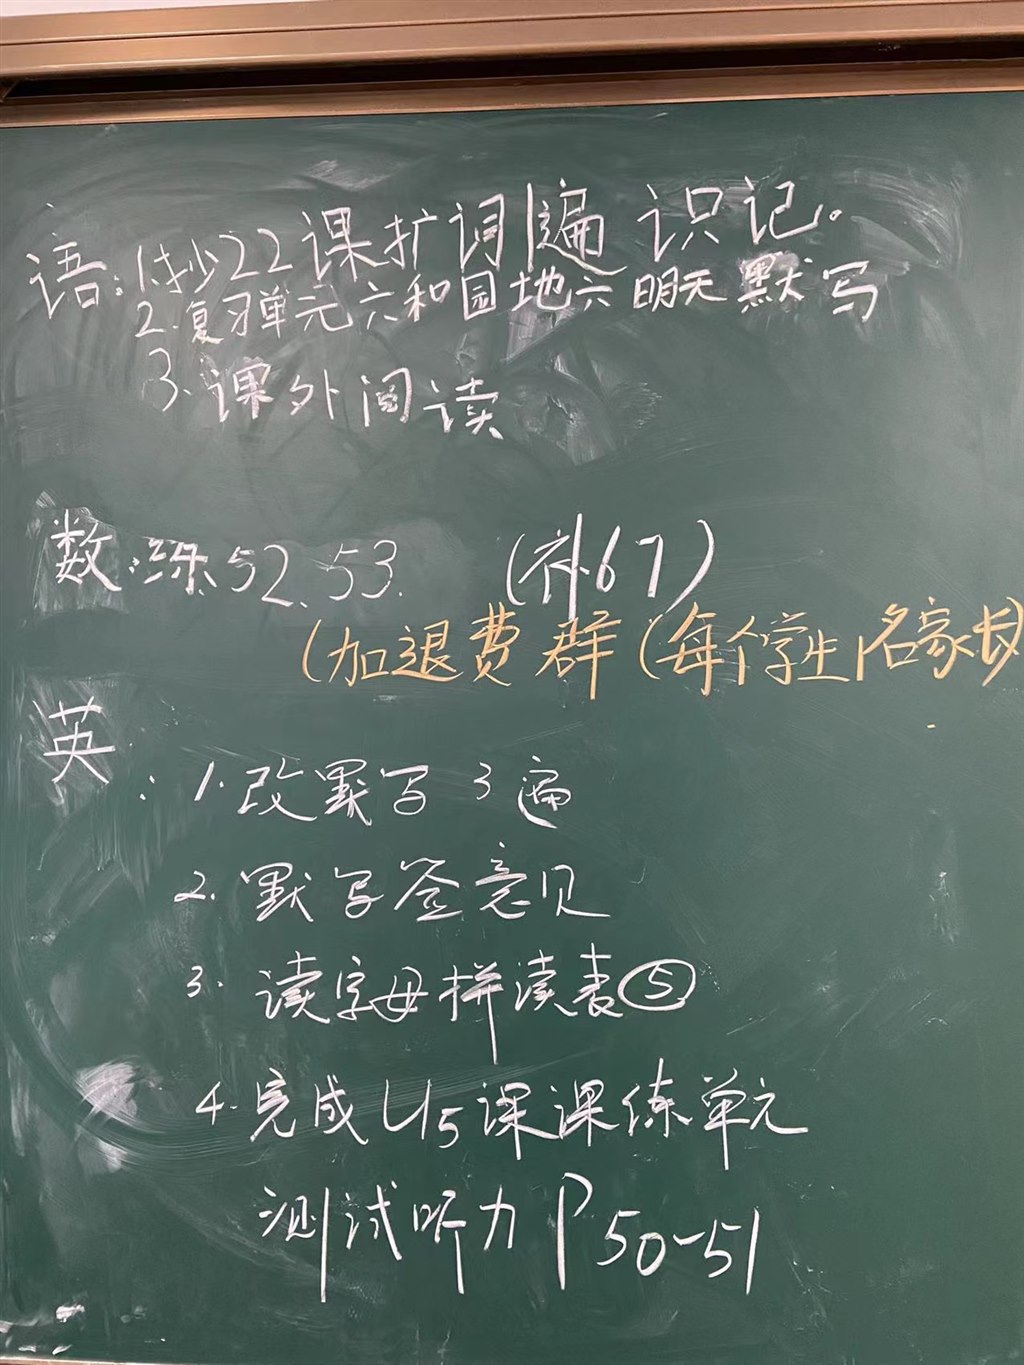 语:1.抄22课扩词1遍 识记。
2.复习单元六和园地六 明天默写
3.课外阅读
数:练52.53. (补67)
(加退费群(每个学生1名家长)
英:1.改默写3遍
2.默写签意见
3.读字母拼读表⑤
4.完成U5课课练单元
测试听力P50-51